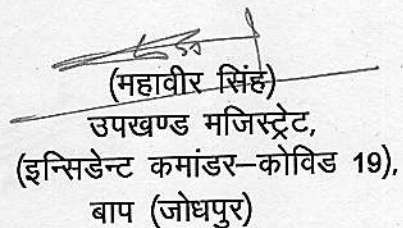 (महावीर सिंह)
उपखण्ड मजिस्ट्रेट,
(इन्सिडेन्ट कमांडर–कोविड 19),
बाप (जोधपुर)